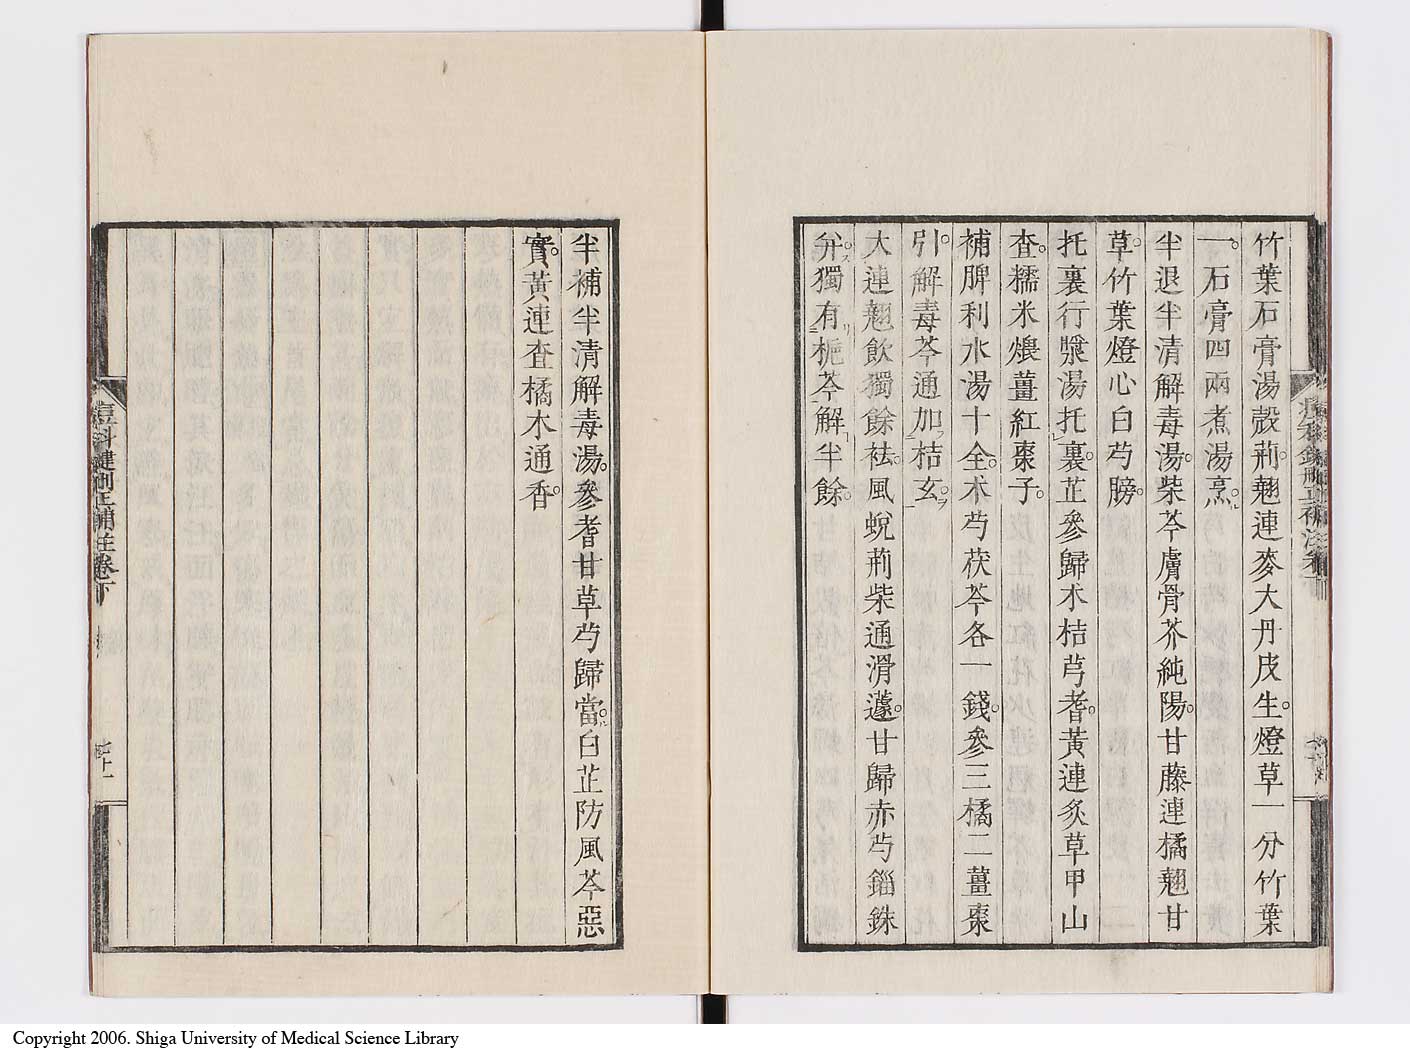 竹葉石膏湯殼荊翹連麥大丹皮生。燈草一分竹葉
一。石膏四兩煮湯烹。
半退半清解毒湯。柴芩膚骨芥純陽。甘藤連橘翹甘
草。竹葉燈心白芍膀。
托裏行漿湯托裏。芷參歸朮桔芎耆。黃連炙草甲山
查。糯米煨薑紅棗子。
補脾利水湯十全。朮芍茯苓各一錢。參三橘二薑棗
引。解毒芩通加桔玄。
大連翹飲獨餘祛。風蛻荊柴通滑蘧。甘歸赤芍錙銖
弁。獨有梔芩解半餘。
半補半清解毒湯。參耆甘草芍歸當。白芷防風芩惡
實。黃連查橘木通香。
痘科鍵刪正補註卷下
七十一
Copyright 2006. Shiga University of Medical Science Library